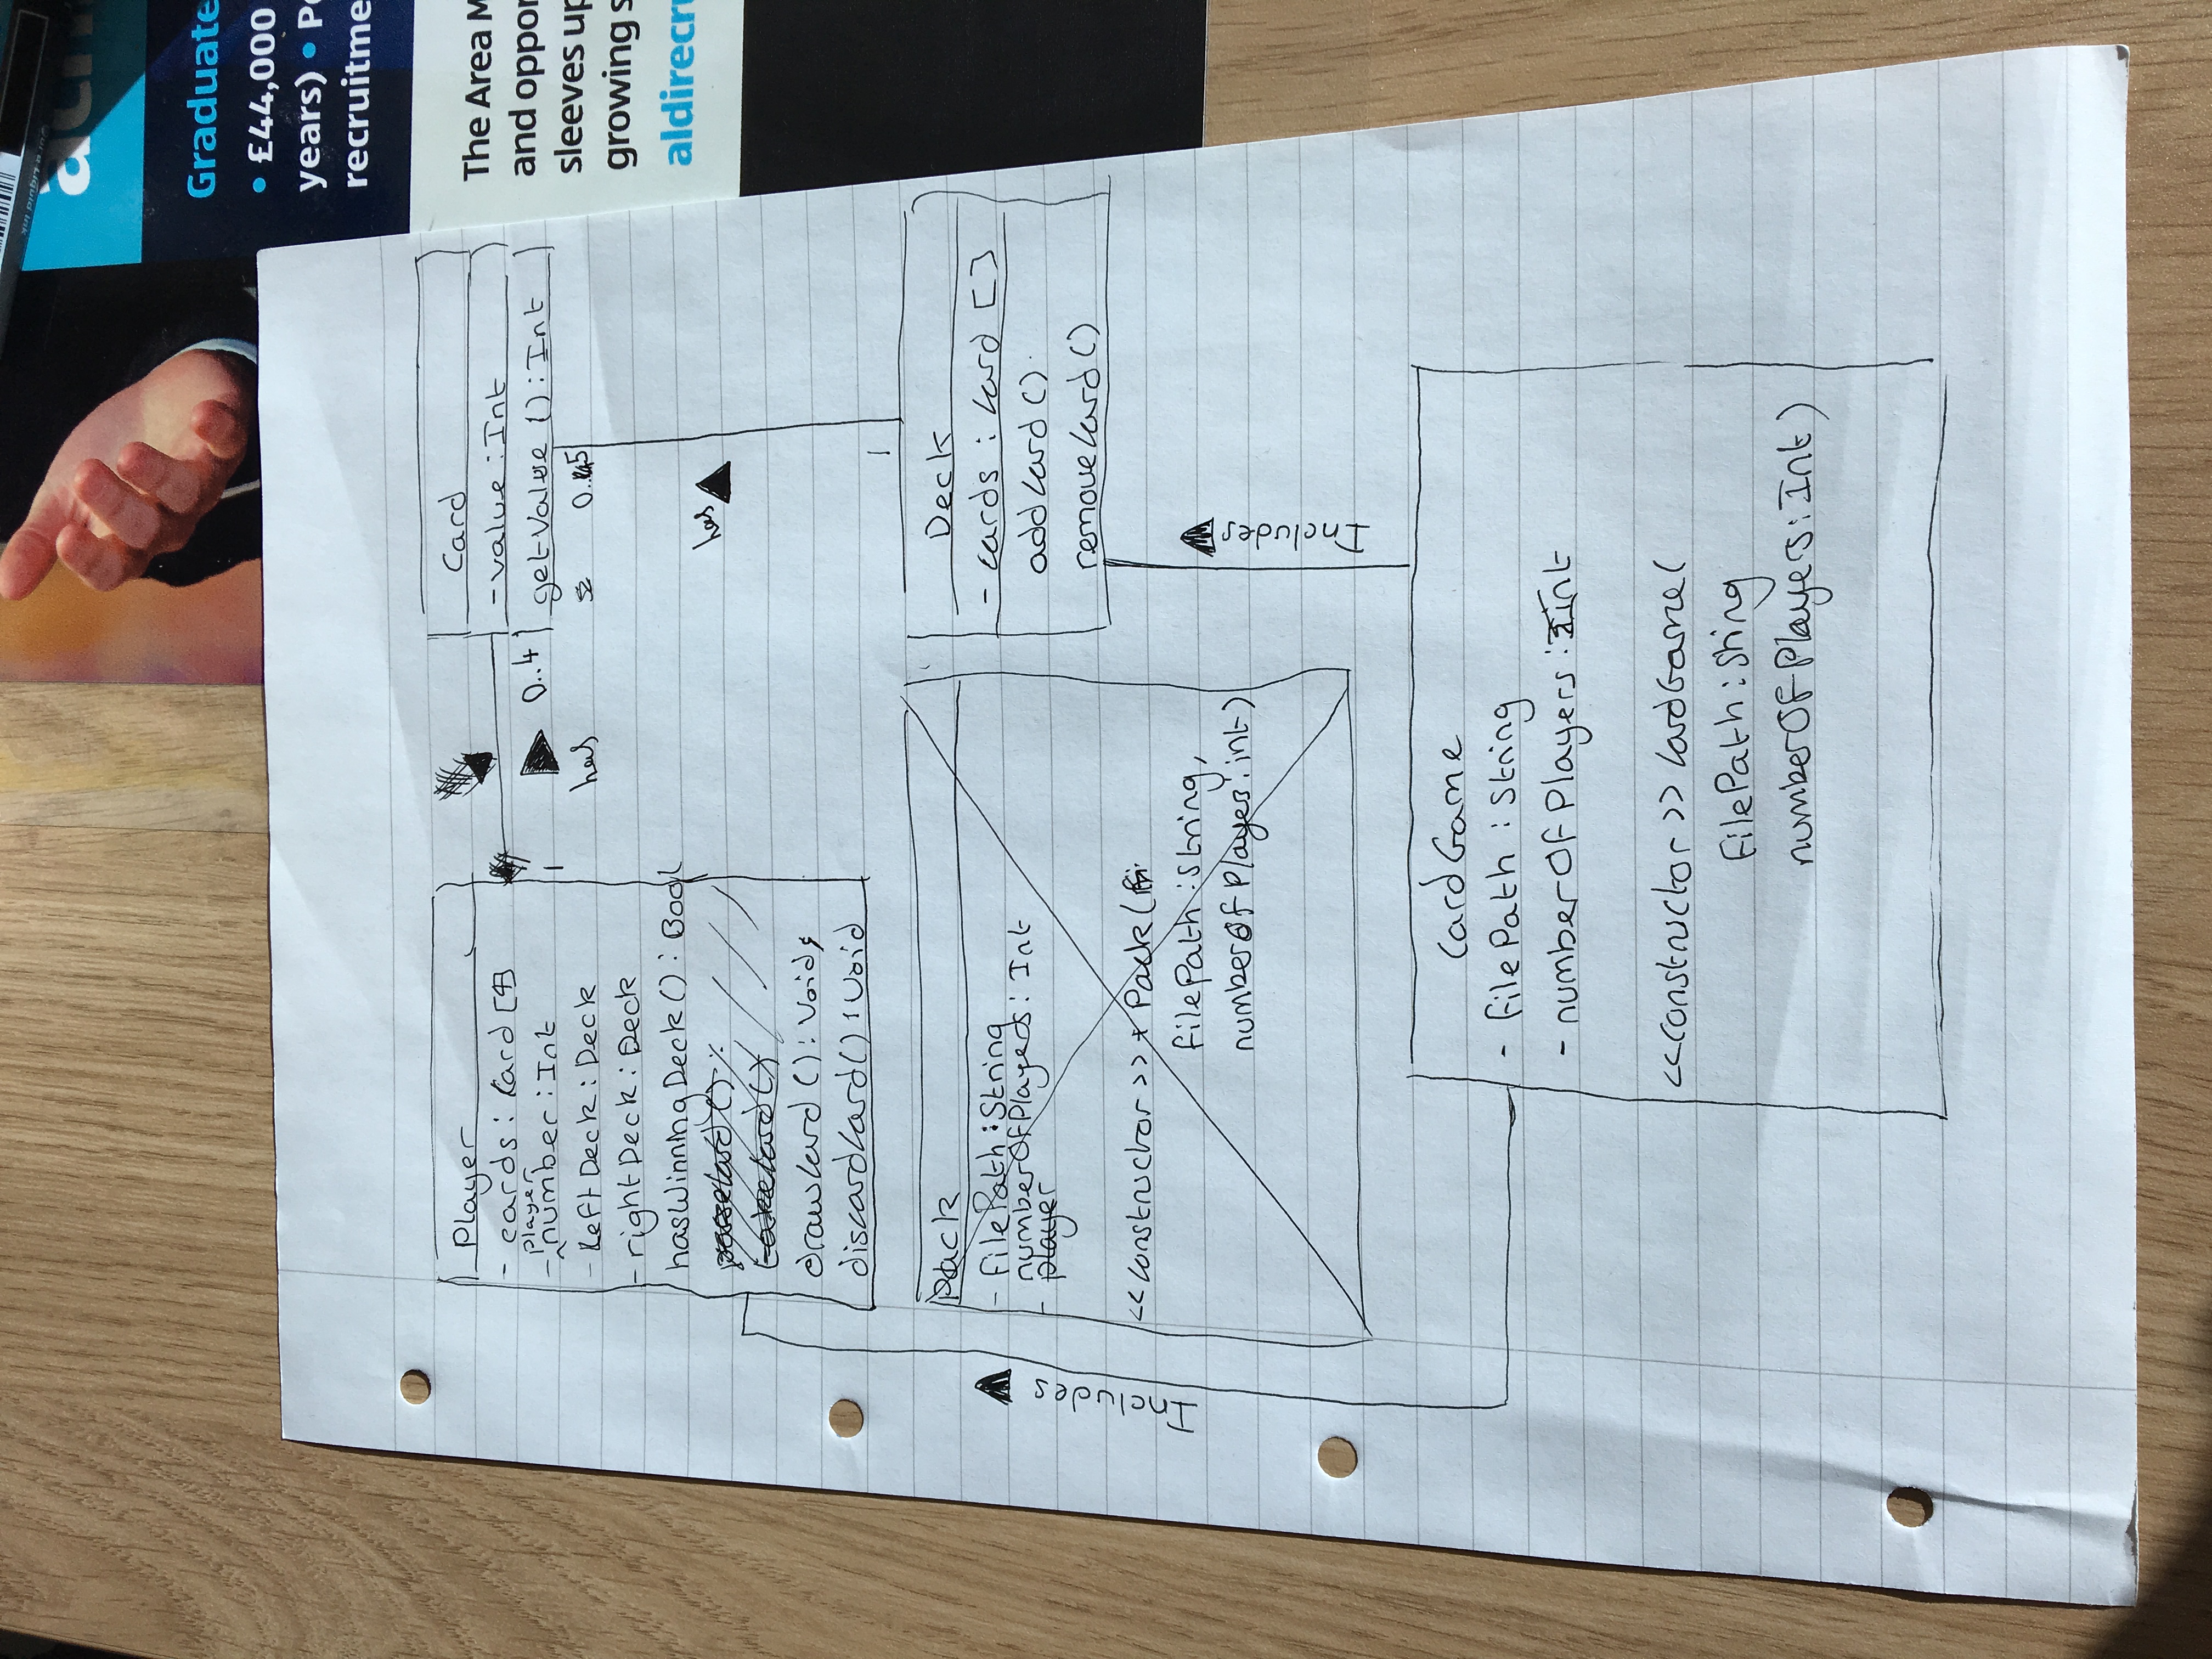 Graduate
• £44,000
years) • P
recruitme
The Area M
and oppor
sleeves up
growing s
aldirecru
Player
- cards : Card [4]
player
- number : Int
- Left Deck : Deck
- rightDeck : Deck
hasWinningDeck () : Bool
passCard () :
takeCard ()
drawCard () : Void
discardCard () : Void
Card
- value : Int
getValue () : Int
1
has
0..4
0..5
has
1
Pack
- filePath : String
numberOfPlayers : Int
- player
<<constructor>> + Pack (
filePath : String,
numberOfPlayers : int)
Deck
- cards : Card []
addCard ()
removeCard ()
Includes
Includes
CardGame
- filePath : String
- numberOfPlayers : int
<<constructor>> CardGame (
filePath : String
numberOfPlayers : Int )